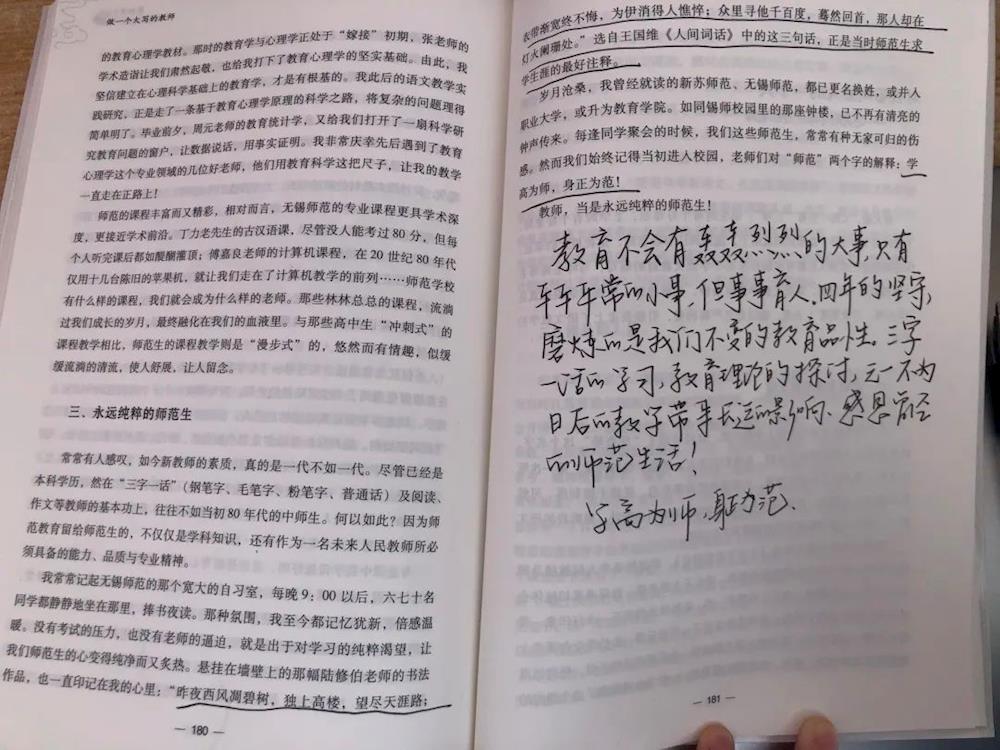 做一个大写的教师
的教育心理学教材。那时的教育学与心理学正处于“嫁接”初期，张老师的
学术造诣让我们肃然起敬，也给我打下了教育心理学的坚实基础。由此，我
坚信建立在心理科学基础上的教育学，才是有根基的。我此后的语文教学实
践研究，正是走了一条基于教育心理学原理的科学之路，将复杂的问题理得
简单明了。毕业前夕，周元老师的教育统计学，又给我们打开了一扇科学研
究教育问题的窗户，让数据说话，用事实证明。我非常庆幸先后遇到了教育
心理学这个专业领域的几位好老师，他们用教育科学这把尺子，让我的教学
一直走在正路上！
师范的课程丰富而又精彩，相对而言，无锡师范的专业课程更具学术深
度，更接近学术前沿。丁力老先生的古汉语课，尽管没人能考过80分，但每
个人听完课后都如醍醐灌顶；傅嘉良老师的计算机课程，在20世纪80年代
仅用十几台陈旧的苹果机，就让我们走在了计算机教学的前列……师范学校
有什么样的课程，我们就会成为什么样的老师。那些林林总总的课程，流淌
过我们成长的岁月，最终融化在我们的血液里。与那些高中生“冲刺式”的
课程教学相比，师范生的课程教学则是“漫步式”的，悠然而有情趣，似缓
缓流淌的清流，使人舒展，让人留念。
三、永远纯粹的师范生
常常有人感叹，如今新教师的素质，真的是一代不如一代。尽管已经是
本科学历，然在“三字一话”（钢笔字、毛笔字、粉笔字、普通话）及阅读、
作文等教师的基本功上，往往不如当初80年代的中师生。何以如此？因为师
范教育留给师范生的，不仅仅是学科知识，还有作为一名未来人民教师所必
须具备的能力、品质与专业精神。
我常常记起无锡师范的那个宽大的自习室，每晚9：00以后，六七十名
同学都静静地坐在那里，捧书夜读。那种氛围，我至今都记忆犹新，倍感温
暖。没有考试的压力，也没有老师的逼迫，就是出于对学习的纯粹渴望，让
我们师范生的心变得纯净而又炙热。悬挂在墙壁上的那幅陆修伯老师的书法
作品，也一直印记在我的心里：“昨夜西风凋碧树，独上高楼，望尽天涯路；
— 180 —
衣带渐宽终不悔，为伊消得人憔悴；众里寻他千百度，蓦然回首，那人却在
灯火阑珊处。”选自王国维《人间词话》中的这三句话，正是当时师范生求
学生涯的最好注释。
岁月沧桑，我曾经就读的新苏师范、无锡师范，都已更名换姓，或并入
职业大学，或升为教育学院。如同锡师校园里的那座钟楼，已不再有清亮的
钟声传来。每逢同学聚会的时候，我们这些师范生，常常有种无家可归的伤
感。然而我们始终记得当初进入校园，老师们对“师范”两个字的解释：学
高为师，身正为范！
教师，当是永远纯粹的师范生！
教育不会有轰轰烈烈的大事，只有
平平常常的小事，但事事育人。四年的坚守，
磨炼的是我们不变的教育品性。三字
一话的学习，教育理论的探讨，无一不为
日后的教学带来长远的影响。感恩曾经
的师范生活！
学高为师，身正为范。
— 181 —